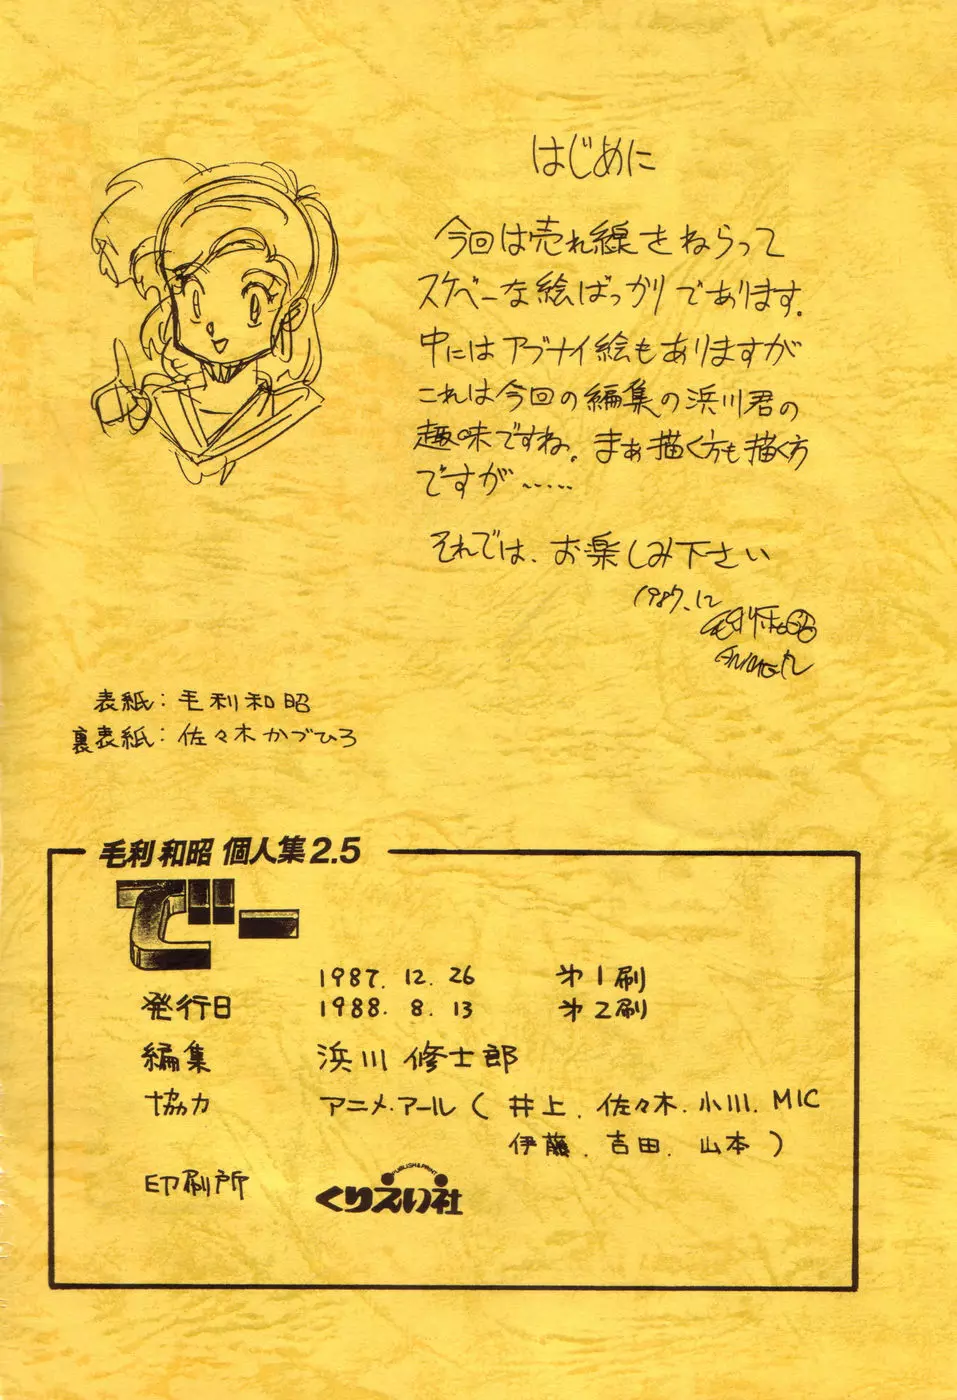 はじめに
今回は売れ線をねらって
スケベーな絵ばっかりであります。
中にはアブナイ絵もありますが
これは今回の編集の浜川君の
趣味ですね。まぁ描く方も描く方
ですが……
それでは、お楽しみ下さい
1987.12
毛利和昭
表紙：毛利和昭
裏表紙：佐々木かづひろ
毛利和昭 個人集2.5
でー
1987.12.26 第1刷
発行日 1988.8.13 第2刷
編集 浜川修士郎
協力 アニメ・アール（井上.佐々木.小川.MIC
伊藤.吉田.山本）
PUBLISH & PRINT
印刷所 くりえい社